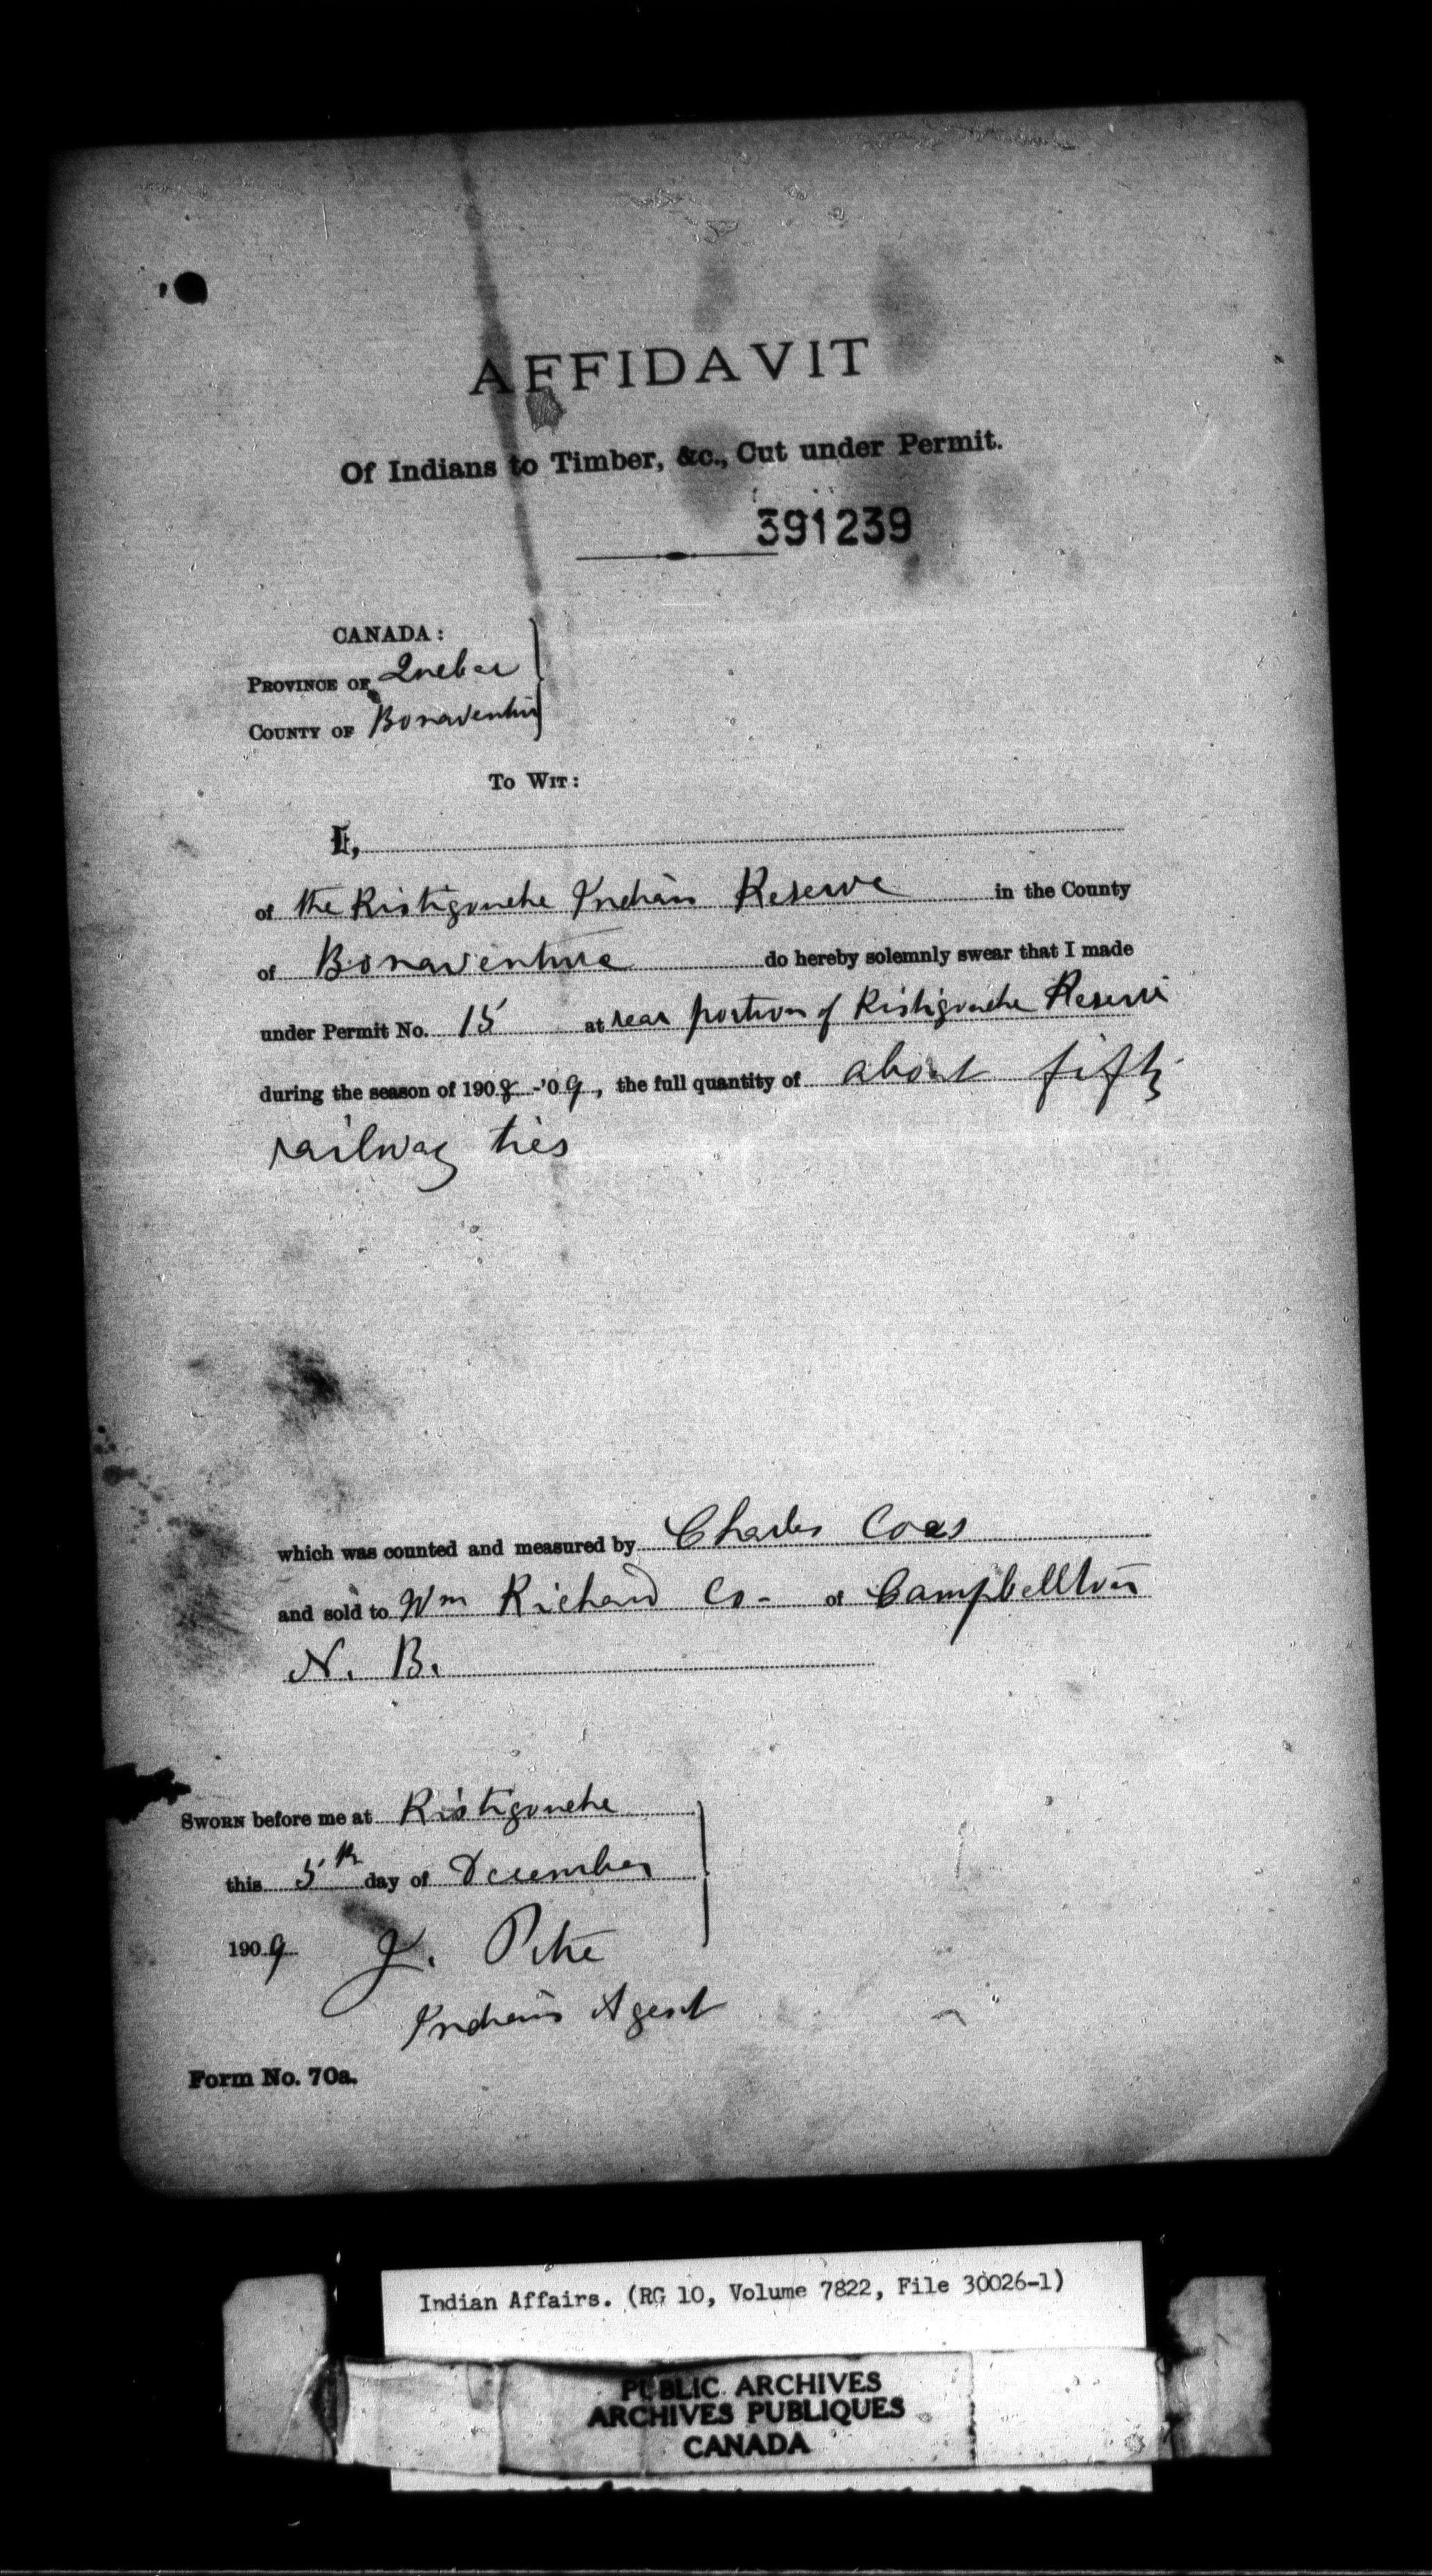 AFFIDAVIT
Of Indians to Timber, &c., Cut under Permit.
391239
CANADA:
PROVINCE OF Quebec
COUNTY OF Bonaventure
TO WIT:
I,
of the Ristigouche Indian Reserve in the County
of Bonaventure do hereby solemnly swear that I made
under Permit No. 15 at rear portion of Ristigouche Reserve
during the season of 1908-'09, the full quantity of about fifty
railway ties
which was counted and measured by Charles
and sold to Wm Richard Co- of Campbellton
N. B.
SWORN before me at Ristigouche
this 5th day of December
1909 J. Pitre
Indian Agent
Form No. 70a.
Indian Affairs. (RG 10, Volume 7822, File 30026-1)
PUBLIC ARCHIVES
ARCHIVES PUBLIQUES
CANADA